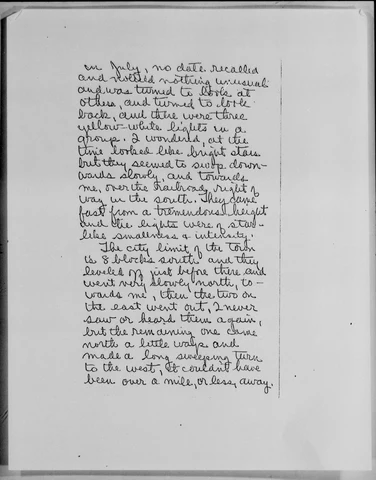 in July, no date recalled
and noticed nothing unusual
and was turned to look at
others, and turned to look
back, and there were three
yellow-white lights in a
group. I wondered, at the
time looked like bright stars
but they seemed to swoop down-
wards slowly, and towards
me, over the railroad right of
way in the south. They came
fast from a tremendous height
and the lights were of star-
like smallness & intensity.
The city limit of the town
is 8 blocks south and they
leveled off just before there and
went very slowly north, to-
wards me, then the two on
the east went out, I never
saw or heard them again,
but the remaining one came
north a little ways and
made a long sweeping turn
to the west, It couldn't have
been over a mile, or less, away.